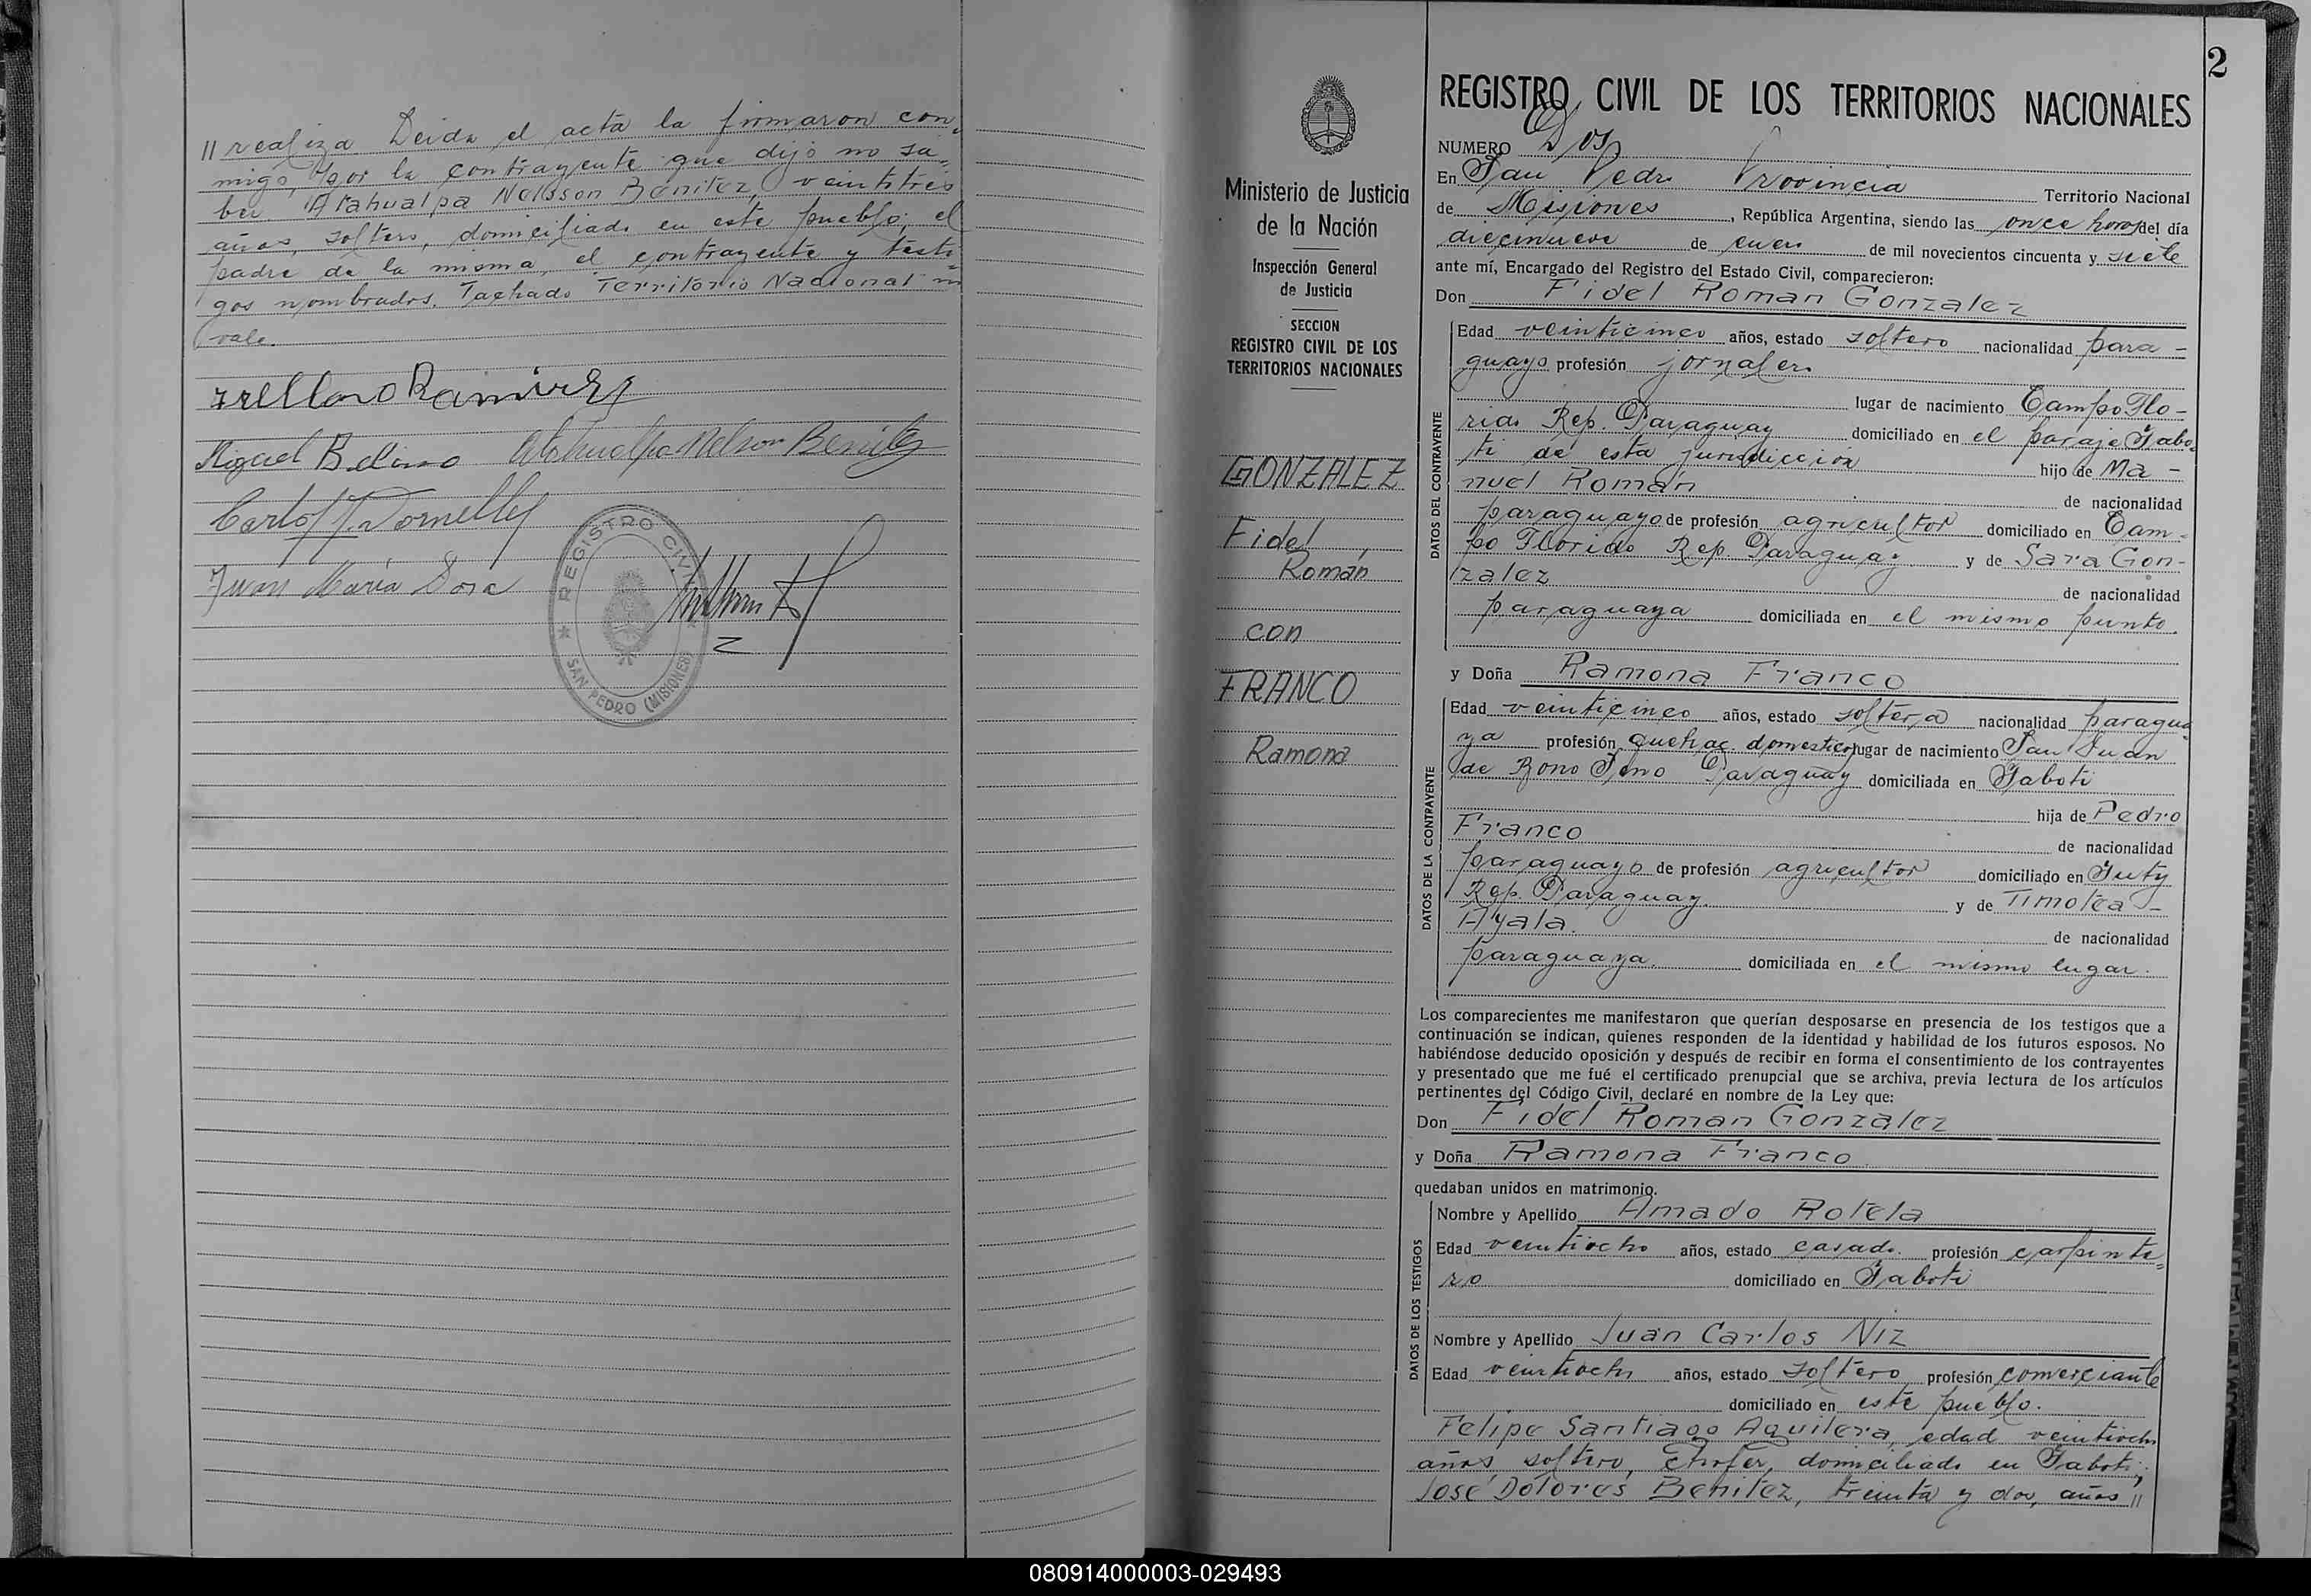 // realiza Leida el acta la firmaron con-
migo, por la contrayente que dijo no sa-
ber Atahualpa Nelsson Benitez, veintitres
años, soltero, domiciliado en este pueblo; el
padre de la misma, el contrayente y testi-
gos nombrados. Tachado Territorio Nacional no
vale.
Arellano Ramirez
Miguel Belino Atahualpa Nelson Benitez
Carlos J. Dornelles
Juan Maria Dosa
REGISTRO CIVIL
★ SAN PEDRO (MISIONES)
2
Ministerio de Justicia
de la Nación
Inspección General
de Justicia
SECCION
REGISTRO CIVIL DE LOS
TERRITORIOS NACIONALES
GONZALEZ
Fidel
Román
con
FRANCO
Ramona
REGISTRO CIVIL DE LOS TERRITORIOS NACIONALES
NUMERO Dos
En San Pedro Provincia Territorio Nacional
de Misiones, República Argentina, siendo las once horas del día
diecinueve de enero de mil novecientos cincuenta y siete
ante mí, Encargado del Registro del Estado Civil, comparecieron:
Don Fidel Roman Gonzalez
DATOS DEL CONTRAYENTE
Edad veinticinco años, estado soltero nacionalidad para-
guayo profesión jornalero
lugar de nacimiento Campo Flo-
rido Rep. Paraguay domiciliado en el paraje Yabo-
ti de esta jurisdiccion hijo de Ma-
nuel Román de nacionalidad
paraguayo de profesión agricultor domiciliado en Cam-
po Florido Rep. Paraguay y de Sara Gon-
zalez de nacionalidad
paraguaya domiciliada en el mismo punto.
y Doña Ramona Franco
DATOS DE LA CONTRAYENTE
Edad veinticinco años, estado soltera nacionalidad paragua-
ya profesión quehac. domesticos lugar de nacimiento San Juan
de Bono Paraguay domiciliada en Yaboti
hija de Pedro
Franco de nacionalidad
paraguayo de profesión agricultor domiciliado en Yuty
Rep. Paraguay. y de Timotea-
Ayala. de nacionalidad
paraguaya. domiciliada en el mismo lugar.
Los comparecientes me manifestaron que querían desposarse en presencia de los testigos que a
continuación se indican, quienes responden de la identidad y habilidad de los futuros esposos. No
habiéndose deducido oposición y después de recibir en forma el consentimiento de los contrayentes
y presentado que me fué el certificado prenupcial que se archiva, previa lectura de los artículos
pertinentes del Código Civil, declaré en nombre de la Ley que:
Don Fidel Roman Gonzalez
y Doña Ramona Franco
quedaban unidos en matrimonio.
DATOS DE LOS TESTIGOS
Nombre y Apellido Amado Rotela
Edad veintiocho años, estado casado. profesión carpinte-
ro domiciliado en Yaboti
Nombre y Apellido Juan Carlos Niz
Edad veintiocho años, estado soltero profesión comerciante
domiciliado en este pueblo.
Felipe Santiago Aguilera, edad veintiocho
años soltero, chofer, domiciliado en Yaboti;
José Dolores Benitez, treinta y dos, años //
080914000003-029493